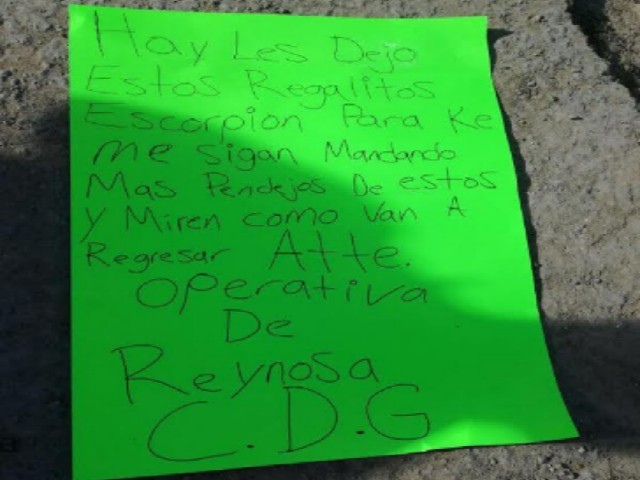 Hay Les Dejo
Estos Regalitos
Escorpion Para Ke
me sigan Mandando
Mas Pendejos De estos
y Miren como Van A
Regresar Atte.
Operativa
De
Reynosa
C.D.G